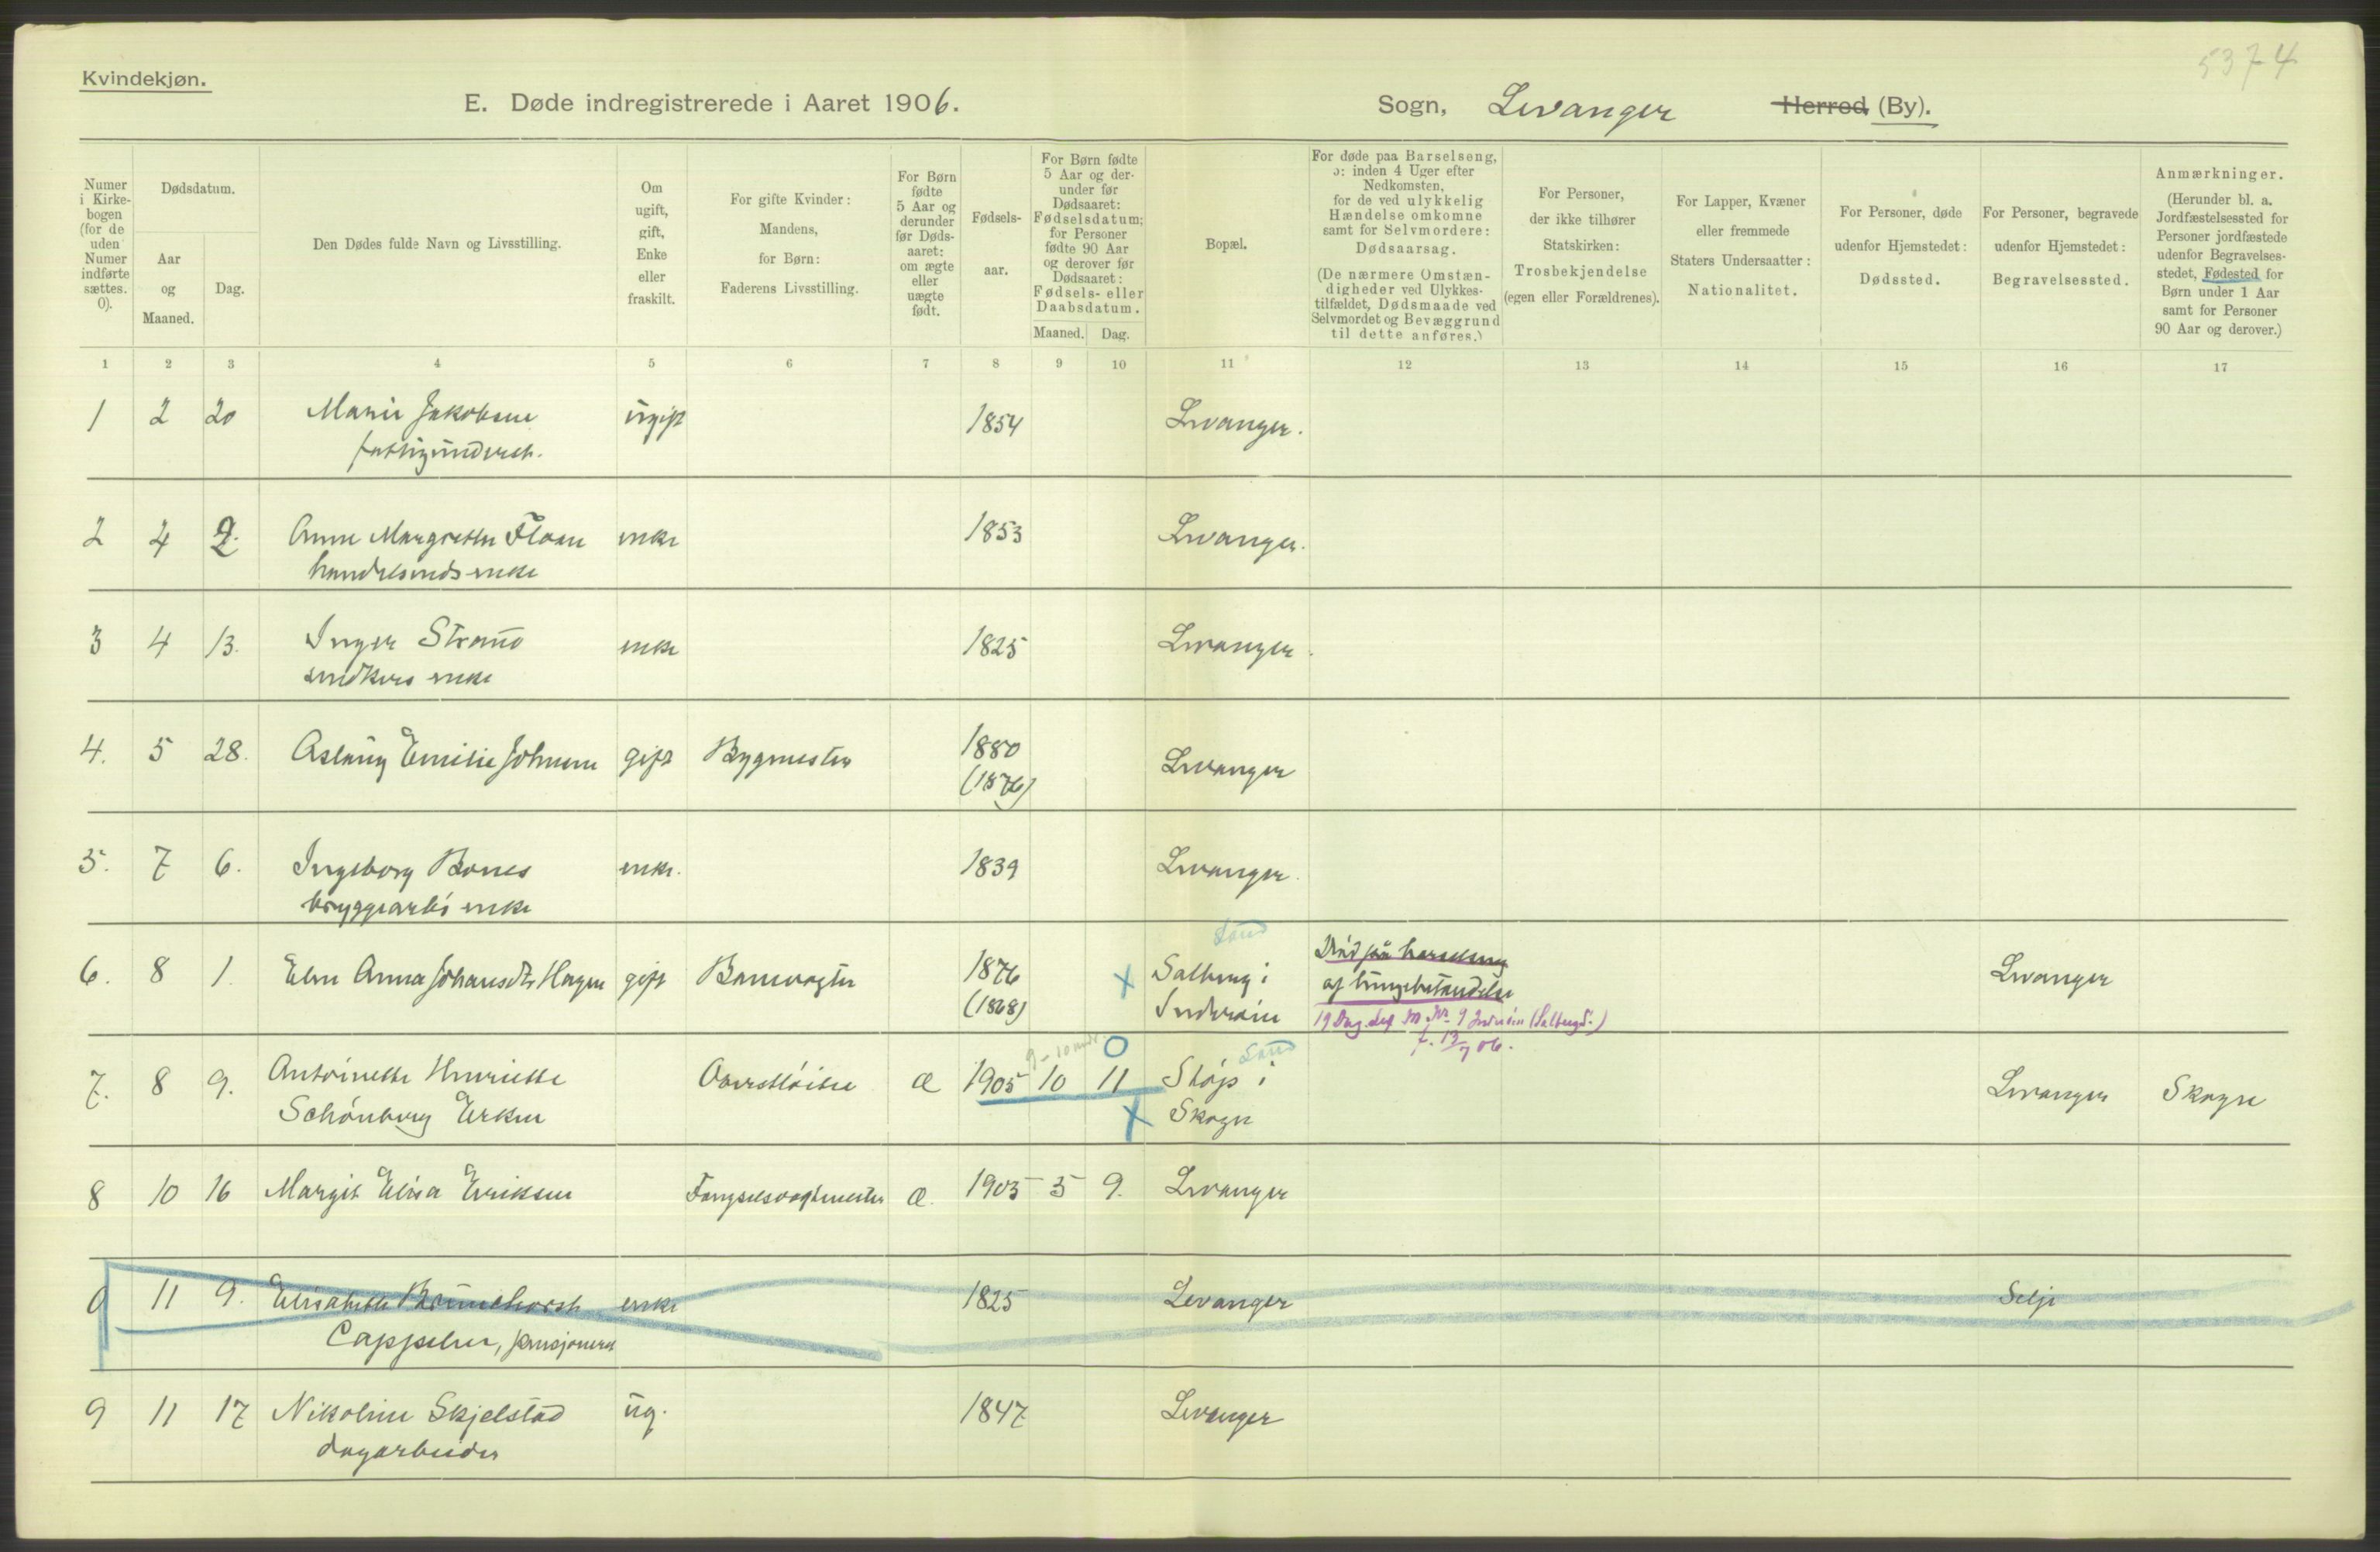 5374
Kvindekjøn.
E. Døde indregistrerede i Aaret 1906.
Sogn, Levanger Herred (By).
Numer
i Kirke-
bogen
(for de
uden
Numer
indførte
sættes.
0).
Dødsdatum.
Aar
og
Maaned.
Dag.
Den Dødes fulde Navn og Livsstilling.
Om
ugift,
gift,
Enke
eller
fraskilt.
For gifte Kvinder:
Mandens,
for Børn:
Faderens Livsstilling.
For Børn
fødte
5 Aar og
derunder
før Døds-
aaret:
om ægte
eller
uægte
født.
Fødsels-
aar.
For Børn fødte
5 Aar og der-
under før
Dødsaaret:
Fødselsdatum;
for Personer
fødte 90 Aar
og derover før
Dødsaaret:
Fødsels- eller
Daabsdatum.
Maaned. Dag.
Bopæl.
For døde paa Barselseng,
ɔ: inden 4 Uger efter
Nedkomsten,
for de ved ulykkelig
Hændelse omkomne
samt for Selvmordere:
Dødsaarsag.
(De nærmere Omstæn-
digheder ved Ulykkes-
tilfældet, Dødsmaade ved
Selvmordet og Bevæggrund
til dette anføres.)
For Personer,
der ikke tilhører
Statskirken:
Trosbekjendelse
(egen eller Forældrenes).
For Lapper, Kvæner
eller fremmede
Staters Undersaatter:
Nationalitet.
For Personer, døde
udenfor Hjemstedet:
Dødssted.
For Personer, begravede
udenfor Hjemstedet:
Begravelsessted.
Anmærkninger.
(Herunder bl. a.
Jordfæstelsessted for
Personer jordfæstede
udenfor Begravelses-
stedet, Fødested for
Børn under 1 Aar
samt for Personer
90 Aar og derover.)
1 2 3 4 5 6 7 8 9 10 11 12 13 14 15 16 17
1 2 20 Marie Jakobsen ugift 1854 Levanger.
fattigunderst.
2 4 2. Anne Margrethe Floan enke 1853 Levanger.
handelsmds enke
3 4 13. Inger Strand enke 1825 Levanger.
snedkers enke
4. 5 28. Aslaug Emilie Johnsen gift Bygmester 1880 Levanger
(1876)
5. 7 6. Ingeborg Bones enke. 1839 Levanger.
bryggearb's enke
Land
6. 8 1. Elen Anna Johansdtr Hagen gift Banevogter 1876 x Salberg i Død på barselseng Levanger
(1868) Inderøen af lungebetændelse
19 Dag. Inderøen (Salberg S.)
f. 13/7 06.
9-10 mdr. 0 Land
7. 8 9. Antoinette Henriette Æ 1905 10 11 i Levanger Skogn
Schønberg Erksen x Skogn
8 10 16 Margit Elisa Eriksen Fængselsvagtmester Æ. 1905 5 9. Levanger
0 11 9. Elisabeth enke 1825 Levanger Selje
Cappelen, pensjonert
9 11 17 Nikoline Skjelstad ug. 1847 Levanger
dagarbeider